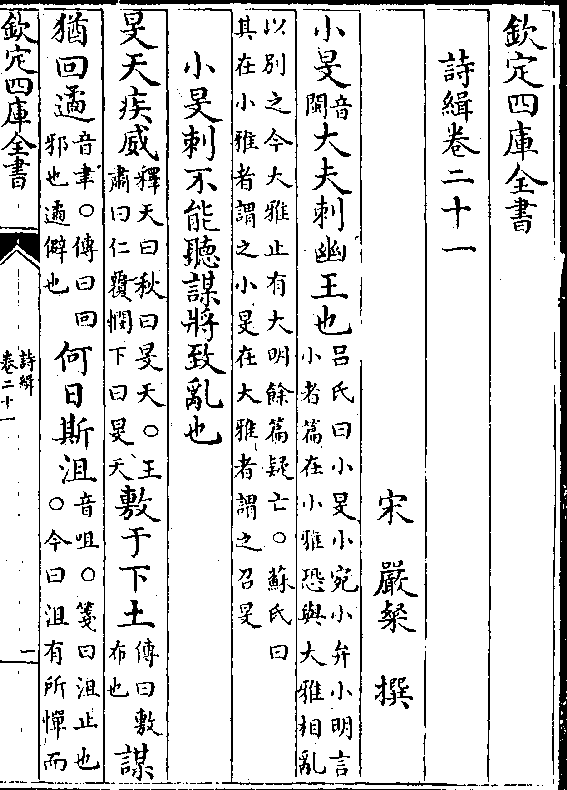 欽定四庫全書
詩緝卷二十一
宋 嚴粲 撰
小旻音閔大夫刺幽王也吕氏曰小旻小宛小弁小明言小者篇在小雅恐與大雅相亂
以别之今大雅止有大明餘篇疑亡○蘇氏曰其在小雅者謂之小旻在大雅者謂之召旻
小旻刺不能聽謀將致亂也
旻天疾威釋天曰秋曰旻天○王肅曰仁覆憫下曰旻天敷于下土傳曰敷布也謀
猶回遹音聿○傳曰回邪也遹僻也何日斯沮音咀○箋曰沮止也○今曰沮有所憚而
欽定四庫全書
詩緝
卷二十一
一